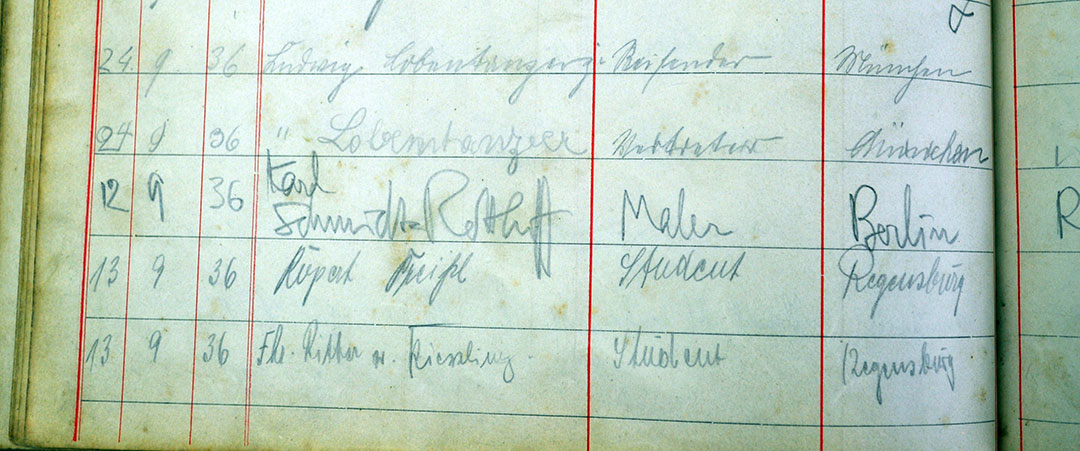 24. 9 36 Ludwig Lobentanzer Reisender München
24 9 36 " Lobentanzer Vertreter München
12 9 36 Karl
Schmidt-Rottluff Maler Berlin
13 9 36 Rupert Student Regensburg
13 9 36 Ritter v. Kiessling. Student Regensburg